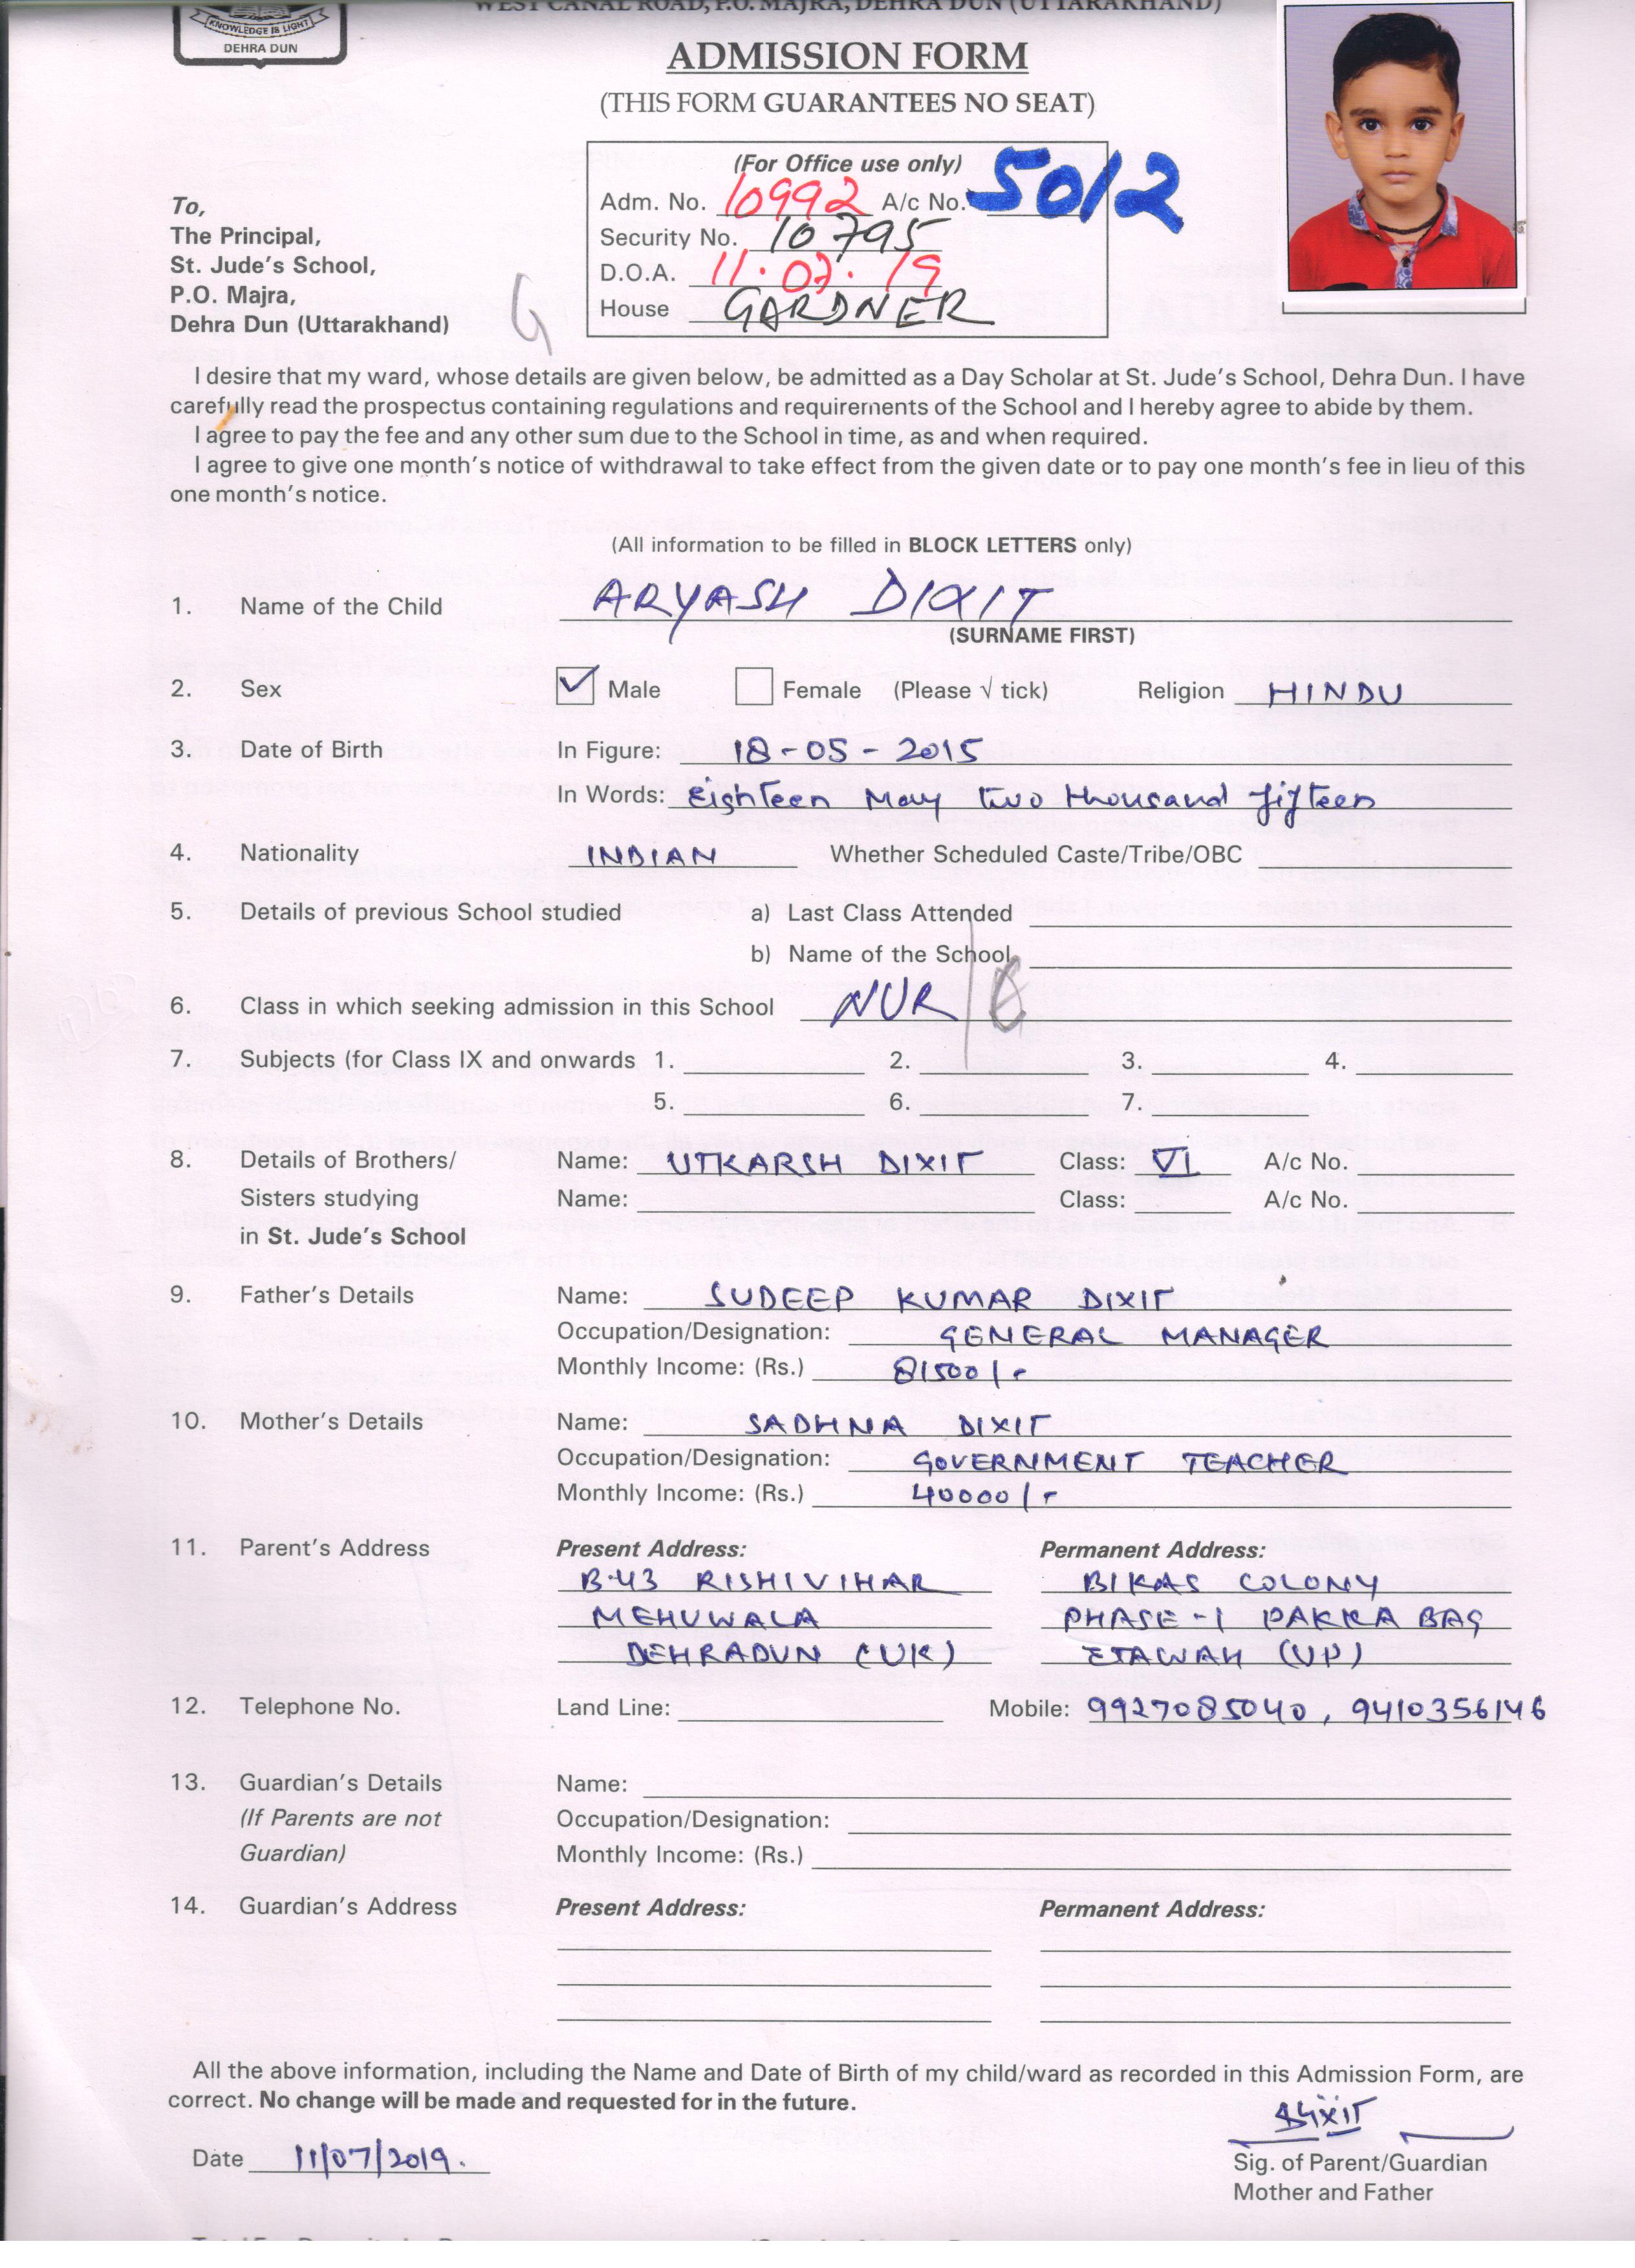 WEST CANAL ROAD, P.O. MAJRA, DEHRA DUN (UTTARAKHAND)
KNOWLEDGE IS LIGHT
DEHRA DUN
ADMISSION FORM
(THIS FORM GUARANTEES NO SEAT)
(For Office use only)
Adm. No. 10992 A/c No. 5012
Security No. 10795
D.O.A. 11.07.19
House GARDNER
G
To,
The Principal,
St. Jude's School,
P.O. Majra,
Dehra Dun (Uttarakhand)
I desire that my ward, whose details are given below, be admitted as a Day Scholar at St. Jude's School, Dehra Dun. I have
carefully read the prospectus containing regulations and requirements of the School and I hereby agree to abide by them.
I agree to pay the fee and any other sum due to the School in time, as and when required.
I agree to give one month's notice of withdrawal to take effect from the given date or to pay one month's fee in lieu of this
one month's notice.
(All information to be filled in BLOCK LETTERS only)
1. Name of the Child ARYASH DIXIT
(SURNAME FIRST)
2. Sex ✓ Male Female (Please √ tick) Religion HINDU
3. Date of Birth In Figure: 18-05-2015
In Words: Eighteen May two thousand fifteen
4. Nationality INDIAN Whether Scheduled Caste/Tribe/OBC
5. Details of previous School studied a) Last Class Attended
b) Name of the School
6. Class in which seeking admission in this School NUR
7. Subjects (for Class IX and onwards 1. 2. 3. 4.
5. 6. 7.
8. Details of Brothers/ Name: UTKARSH DIXIT Class: VI A/c No.
Sisters studying Name: Class: A/c No.
in St. Jude's School
9. Father's Details Name: SUDEEP KUMAR DIXIT
Occupation/Designation: GENERAL MANAGER
Monthly Income: (Rs.) 81500/-
10. Mother's Details Name: SADHNA DIXIT
Occupation/Designation: GOVERNMENT TEACHER
Monthly Income: (Rs.) 40000/-
11. Parent's Address Present Address: Permanent Address:
B-43 RISHIVIHAR BIKAS COLONY
MEHUWALA PHASE-1 PAKKA BAG
DEHRADUN (UK) ETAWAH (UP)
12. Telephone No. Land Line: Mobile: 9927085040, 9410356146
13. Guardian's Details Name:
(If Parents are not Occupation/Designation:
Guardian) Monthly Income: (Rs.)
14. Guardian's Address Present Address: Permanent Address:
All the above information, including the Name and Date of Birth of my child/ward as recorded in this Admission Form, are
correct. No change will be made and requested for in the future.
Dixit
Date 11/07/2019.
Sig. of Parent/Guardian
Mother and Father